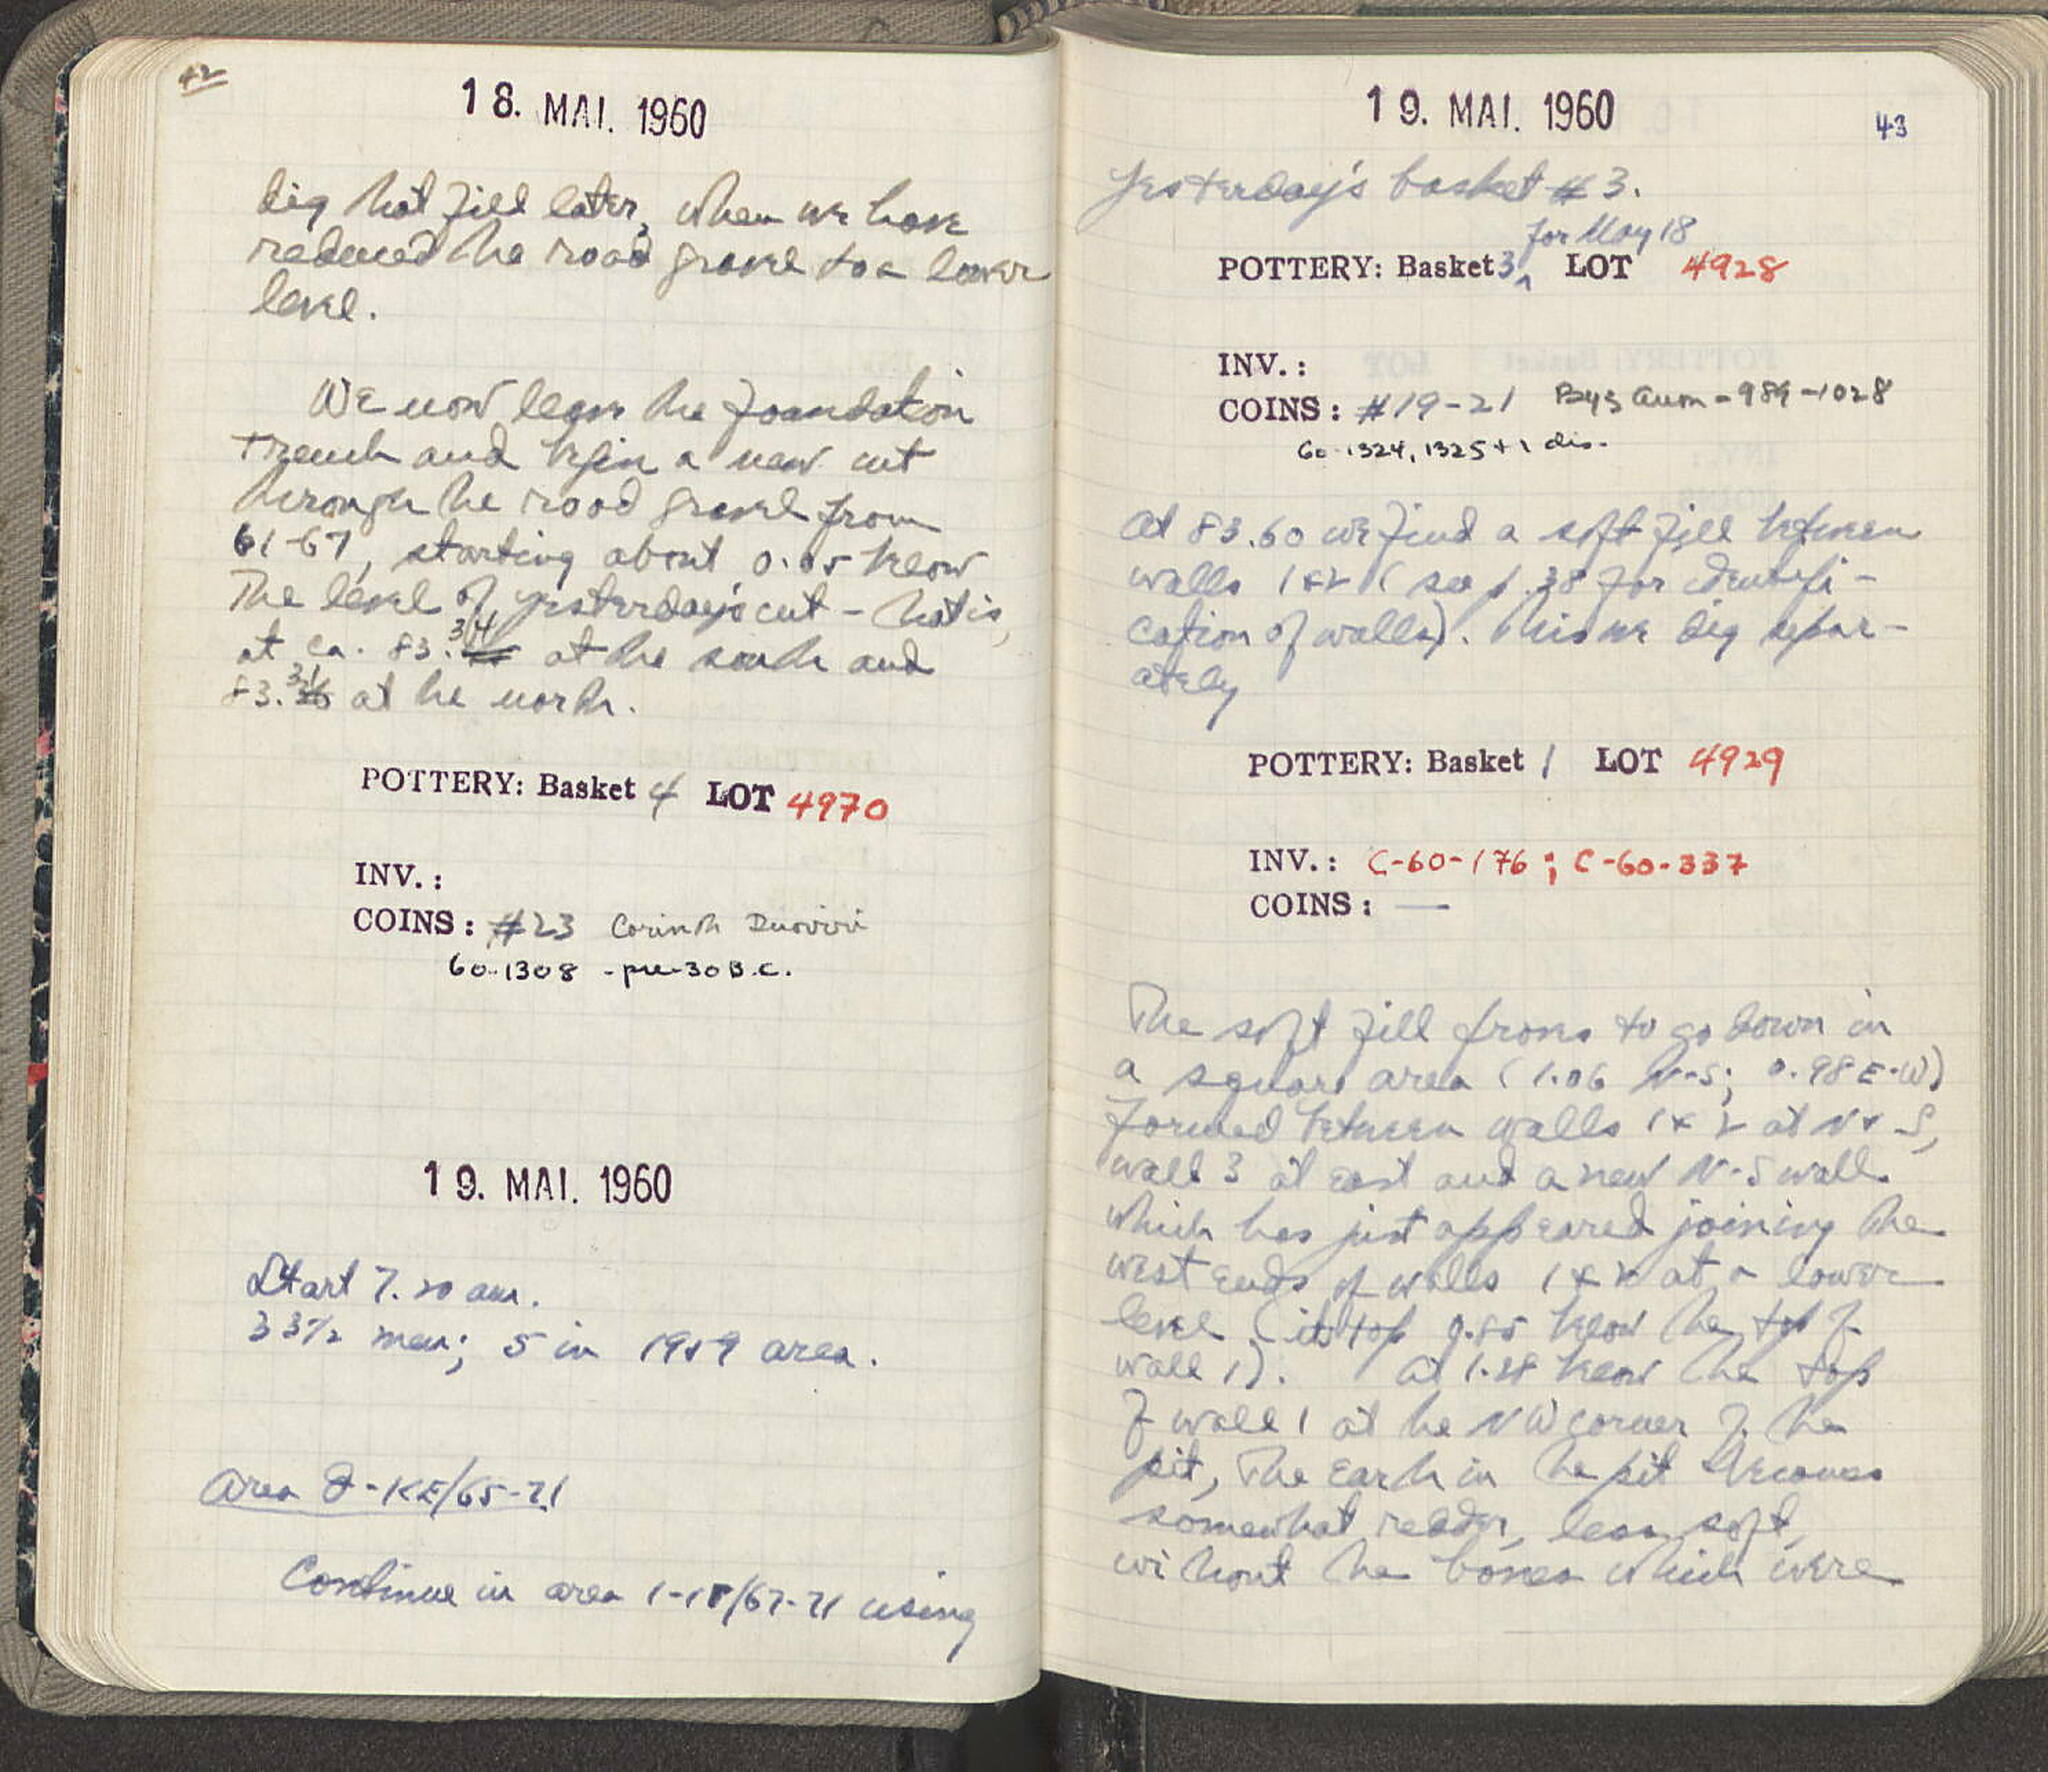 42
18. MAI. 1960
dig that fill later, when we have
reduced the road gravel to a lower
level.
We now leave the foundation
trench and begin a new cut
through the road gravel from
61-67, starting about 0.05 below
The level of yesterday's cut - that is,
at ca. 83.34 at the south and
83.31 at the north.
POTTERY: Basket 4 LOT 4970
INV.:
COINS: #23 Corinth Duoviri
60-1308 - pre-30 B.C.
19. MAI. 1960
Start 7.20 am.
33½ men; 5 in 1959 area.
Area I-KE/65-71
Continue in area /67-71 using
19. MAI. 1960
43
yesterday's basket #3.
for May 18
POTTERY: Basket 3 ^ LOT 4928
INV.:
COINS: #19-21 Byz Anon - 989-1028
60-1324, 1325 + 1 dis.
At 83.60 we find a soft fill between
walls 1 & 2 (see p. 38 for identifi-
cation of walls). This we dig separ-
ately
POTTERY: Basket 1 LOT 4929
INV.: C-60-176; C-60-337
COINS: —
The soft fill proves to go down in
a square area (1.06 N-S; 0.98 E-W)
formed between walls 1 & 2 at N & S,
wall 3 at east and a new N-S wall
which has just appeared joining the
west ends of walls 1 & 2 at a lower
level (its top 0.85 below the top of
wall 1). At 1.28 below the top
of wall 1 at the NW corner of the
pit, The earth in the pit becomes
somewhat redder, less soft,
without the bones which were